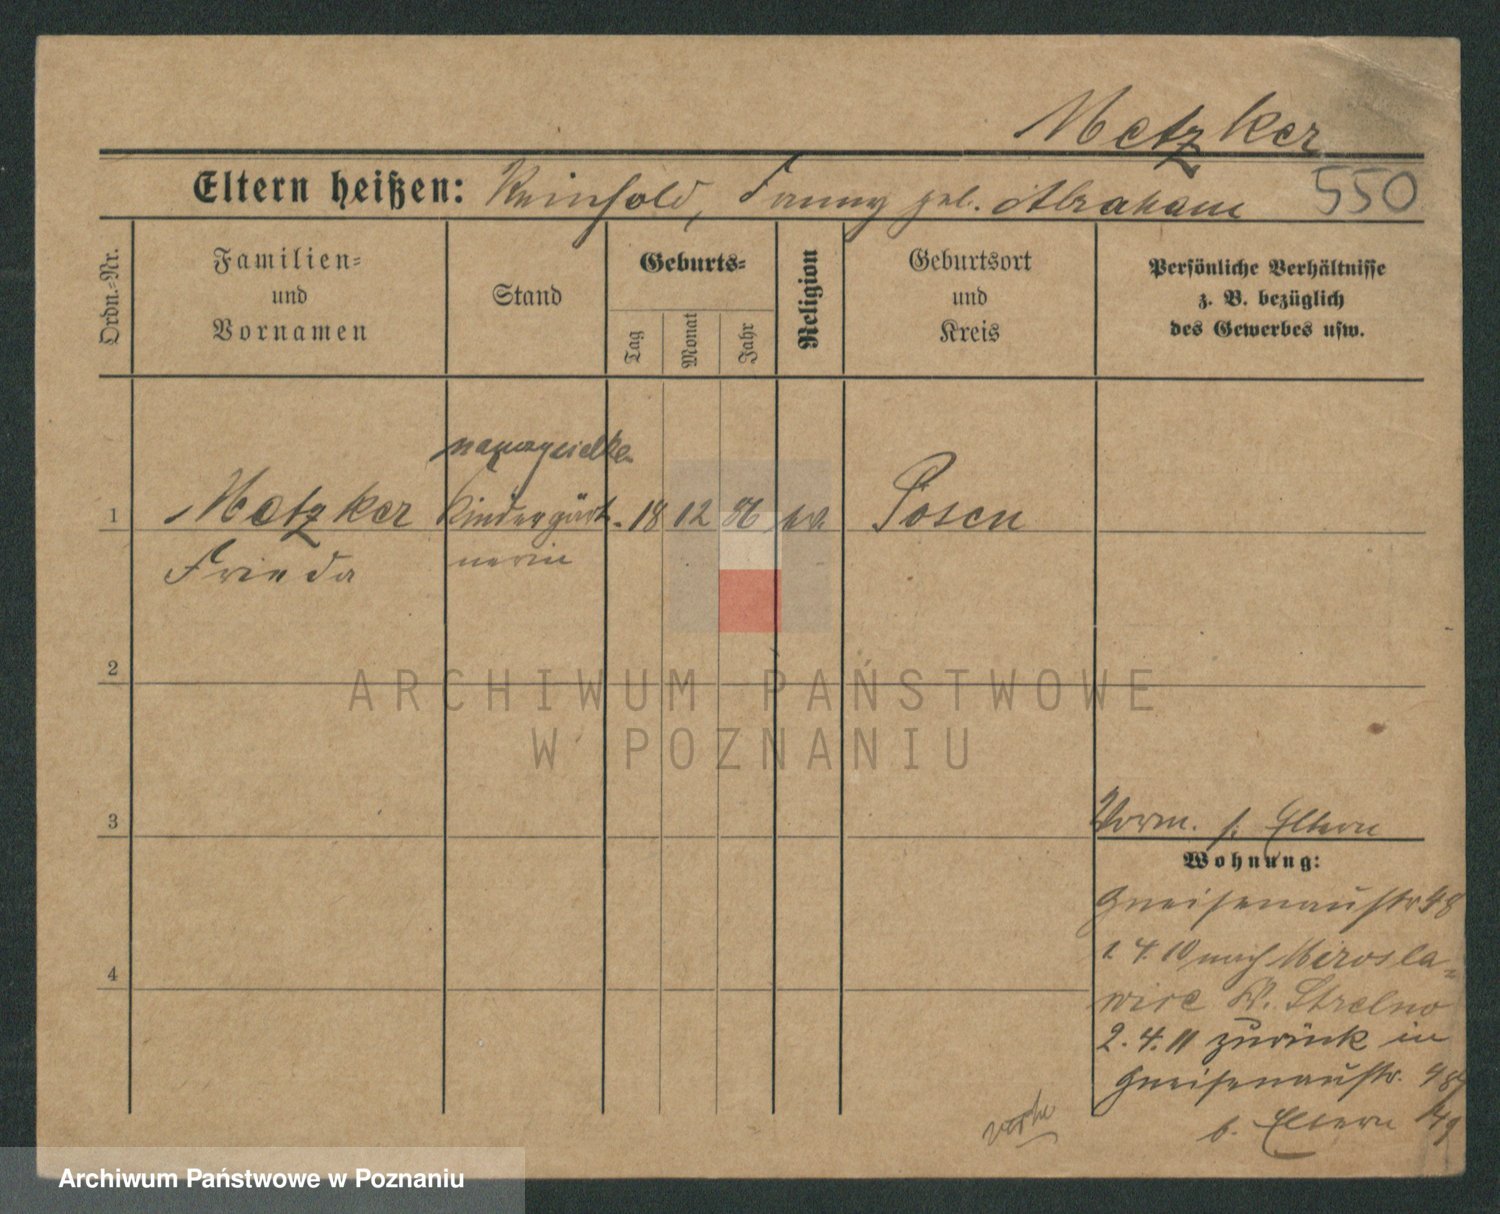 Metzker
Eltern heißen: Reinhold, Fanny geb. Abraham 550
Ordn.-Nr.
Familien-
und
Vornamen
Stand
Geburts-
Tag
Monat
Jahr
Religion
Geburtsort
und
Kreis
Persönliche Verhältnisse
z. B. bezüglich
des Gewerbes usw.
nauczycielka
1 Metzker Kindergärt- 18 12 86 ev Posen
Frieda nerin
2
3
4
Vorm. s. Eltern
Wohnung:
Gneisenaustr 48
1. 4. 10 nach Mirosla-
wice K. Strelno
2. 4. 11 zurück in
Gneisenaustr. 48
b. Eltern
ARCHIWUM PAŃSTWOWE
W POZNANIU
Archiwum Państwowe w Poznaniu